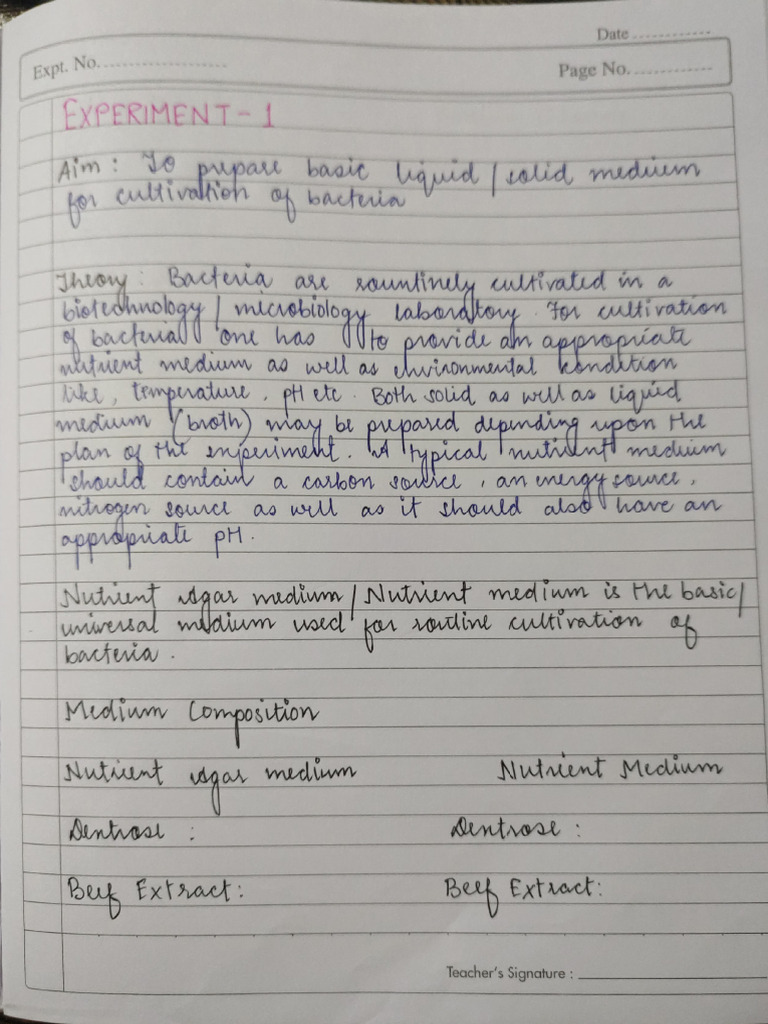 Date ............
Expt. No. ...................
Page No. .............
EXPERIMENT - 1
Aim : To prepare basic liquid / solid medium
for cultivation of bacteria
Theory : Bacteria are rountinely cultivated in a
biotechnology / microbiology laboratory. For cultivation
of bacteria one has to provide an appropriate
nutrient medium as well as environmental kondition
like, temperature, pH etc. Both solid as well as liquid
medium (broth) may be prepared depending upon the
plan of the experiment. A typical nutrient medium
should contain a carbon source, an energy source,
nitrogen source as well as it should also have an
appropriate pH.
Nutrient Agar medium / Nutrient medium is the basic /
universal medium used for routline cultivation of
bacteria.
Medium Composition
Nutrient Agar medium Nutrient Medium
Dextrose : Dextrose :
Beef Extract: Beef Extract:
Teacher's Signature : ____________